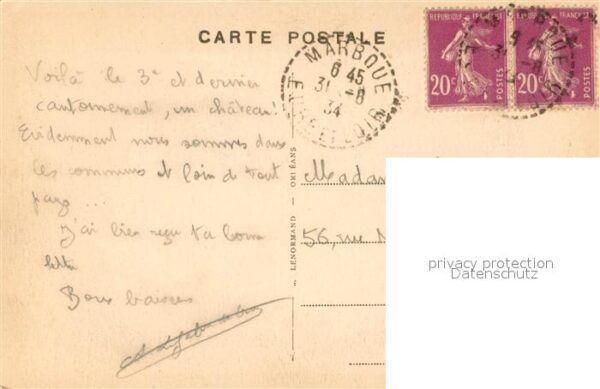 CARTE POSTALE
Voilà le 3e et dernier
cantonnement, un château!
Evidemment nous sommes dans
les communs et loin de tout
pays...
J'ai bien reçu ta bonne
lettre
Bons baisers
MARBOUE
6 45
31-8
34
EURE ET LOIR
REPUBLIQUE FRANÇAISE
20c
POSTES
REPUBLIQUE FRANÇAISE
20c
POSTES
LENORMAND - ORLÉANS
Madam
56, rue
privacy protection
Datenschutz